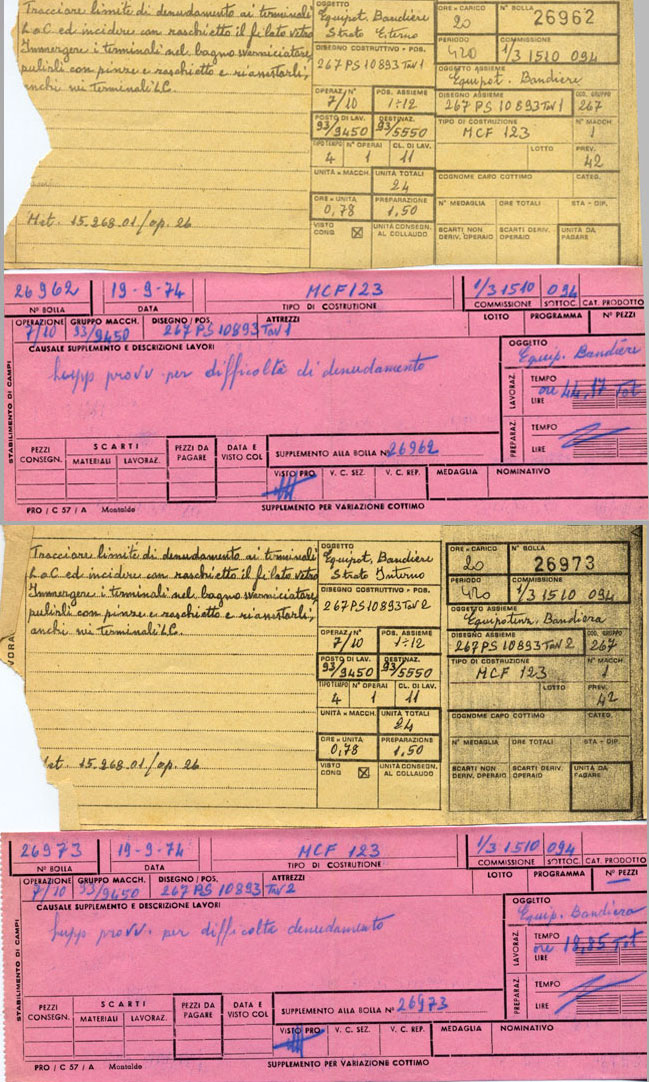 Tracciare limite di denudamento ai terminali
L.a.C ed incidere con raschietto il filato vetro
Immergere i terminali nel bagno sverniciatore,
pulirli con pinze e raschietto e riassortirli,
anchi nei terminali LC.
Met. 15.268.01/op. 26
OGGETTO
Equipot. Bandiere
Strato Eterno
DISEGNO COSTRUTTIVO - POS.
267 PS 10893 TAV 1
OPERAZ. N° POS. ASSIEME
7/10 1÷12
POSTO DI LAV. DESTINAZ.
93/9450 93/5550
TIPO TEMPO N° OPERAI CL. DI LAV.
4 1 11
UNITÀ × MACCH. UNITÀ TOTALI
24
ORE × UNITÀ PREPARAZIONE
0,78 1,50
VISTO CONG UNITÀ CONSEGN. AL COLLAUDO
ORE × CARICO N° BOLLA
20 26962
PERIODO COMMISSIONE
420 1/3 1510 094
OGGETTO ASSIEME
Equipot. Bandiere
DISEGNO ASSIEME COD. GRUPPO
267 PS 10893 TAV 1 267
TIPO DI COSTRUZIONE N° MACCH.
MCF 123 1
LOTTO PREV.
42
COGNOME CAPO COTTIMO CATEG.
N° MEDAGLIA ORE TOTALI STA - DIP.
SCARTI NON DERIV. OPERAIO SCARTI DERIV. OPERAIO UNITÀ DA PAGARE
26962 19-9-74 MCF 123 1/3 1510 094
N° BOLLA DATA TIPO DI COSTRUZIONE COMMISSIONE SOTTOC. CAT. PRODOTTO
OPERAZIONE GRUPPO MACCH. DISEGNO / POS. ATTREZZI LOTTO PROGRAMMA N° PEZZI
7/10 93/9450 267 PS 10893 TAV 1
CAUSALE SUPPLEMENTO E DESCRIZIONE LAVORI
supp provv. per difficoltà di denudamento
OGGETTO
Equip. Bandiere
LAVORAZ.
TEMPO
ore 44,17 Tot
LIRE
PREPARAZ.
TEMPO
LIRE
STABILIMENTO DI CAMPI
PEZZI CONSEGN. SCARTI MATERIALI LAVORAZ. PEZZI DA PAGARE DATA E VISTO COL
SUPPLEMENTO ALLA BOLLA N° 26962
VISTO PRO. V. C. SEZ. V. C. REP. MEDAGLIA NOMINATIVO
PRO / C 57 / A Montaldo SUPPLEMENTO PER VARIAZIONE COTTIMO
VORA
Tracciare limite di denudamento ai terminali
L.a.C ed incidere con raschietto il filato vetro
Immergere i terminali nel bagno sverniciatore,
pulirli con pinze e raschietto e riassortirli,
anchi nei terminali LC.
Met. 15.268.01/op. 26
OGGETTO
Equipot. Bandiere
Strato Interno
DISEGNO COSTRUTTIVO - POS.
267 PS 10893 TAV 2
OPERAZ. N° POS. ASSIEME
7/10 1÷12
POSTO DI LAV. DESTINAZ.
93/9450 93/5550
TIPO TEMPO N° OPERAI CL. DI LAV.
4 1 11
UNITÀ × MACCH. UNITÀ TOTALI
24
ORE × UNITÀ PREPARAZIONE
0,78 1,50
VISTO CONG UNITÀ CONSEGN. AL COLLAUDO
ORE × CARICO N° BOLLA
20 26973
PERIODO COMMISSIONE
420 1/3 1510 094
OGGETTO ASSIEME
Equipotenz. Bandiera
DISEGNO ASSIEME COD. GRUPPO
267 PS 10893 TAV 2 267
TIPO DI COSTRUZIONE N° MACCH.
MCF 123 1
LOTTO PREV.
42
COGNOME CAPO COTTIMO CATEG.
N° MEDAGLIA ORE TOTALI STA - DIP.
SCARTI NON DERIV. OPERAIO SCARTI DERIV. OPERAIO UNITÀ DA PAGARE
26973 19-9-74 MCF 123 1/3 1510 094
N° BOLLA DATA TIPO DI COSTRUZIONE COMMISSIONE SOTTOC. CAT. PRODOTTO
OPERAZIONE GRUPPO MACCH. DISEGNO / POS. ATTREZZI LOTTO PROGRAMMA N° PEZZI
7/10 93/9450 267 PS 10893 TAV 2
CAUSALE SUPPLEMENTO E DESCRIZIONE LAVORI
supp provv. per difficoltà denudamento
OGGETTO
Equip. Bandiera
LAVORAZ.
TEMPO
ore 18,85 Tot
LIRE
PREPARAZ.
TEMPO
LIRE
STABILIMENTO DI CAMPI
PEZZI CONSEGN. SCARTI MATERIALI LAVORAZ. PEZZI DA PAGARE DATA E VISTO COL
SUPPLEMENTO ALLA BOLLA N° 26973
VISTO PRO. V. C. SEZ. V. C. REP. MEDAGLIA NOMINATIVO
PRO / C 57 / A Montaldo SUPPLEMENTO PER VARIAZIONE COTTIMO